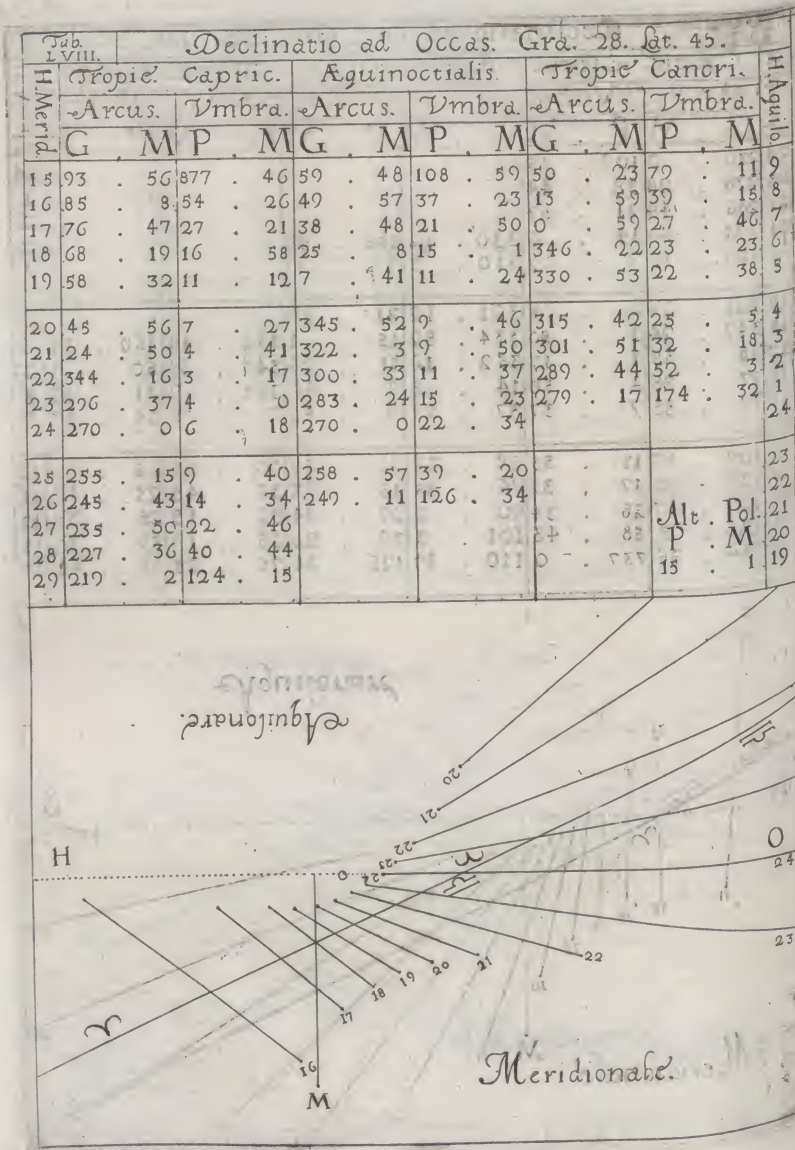 Tub. LVIII. Declinatio ad Occas. Gra. 28. Lat. 45.
H. Merid. Tropic. Capric. Æquinoctialis. Tropic Cancri. H. Aquilo.
Arcus. Vmbra. Arcus. Vmbra. Arcus. Vmbra.
G . M P . M G . M P . M G . M P . M
15 93 . 56 877 . 46 59 . 48 108 . 59 50 . 23 79 . 11 9
16 85 . 8 54 . 26 49 . 57 37 . 23 13 . 59 39 . 15 8
17 76 . 47 27 . 21 38 . 48 21 . 50 0 . 59 27 . 46 7
18 68 . 19 16 . 58 25 . 8 15 . 1 346 . 22 23 . 23 6
19 58 . 32 11 . 12 7 . 41 11 . 24 330 . 53 22 . 38 5
20 45 . 56 7 . 27 345 . 52 9 . 46 315 . 42 25 . 5 4
21 24 . 50 4 . 41 322 . 3 9 . 50 301 . 51 32 . 18 3
22 344 . 16 3 . 17 300 . 33 11 . 37 289 . 44 52 . 3 2
23 296 . 37 4 . 0 283 . 24 15 . 23 279 . 17 174 . 32 1
24 270 . 0 6 . 18 270 . 0 22 . 34 24
25 255 . 15 9 . 40 258 . 57 39 . 20 23
26 245 . 43 14 . 34 249 . 11 126 . 34 22
27 235 . 50 22 . 46 Alt . Pol. 21
28 227 . 36 40 . 44 P . M 20
29 219 . 2 124 . 15 15 . 1 19
Aquilonare.
20
21
♎
22
23
H O 24 ♈ ♎ O
24
23
22
21
20
19
18
17
♈
16
M
Meridionale.